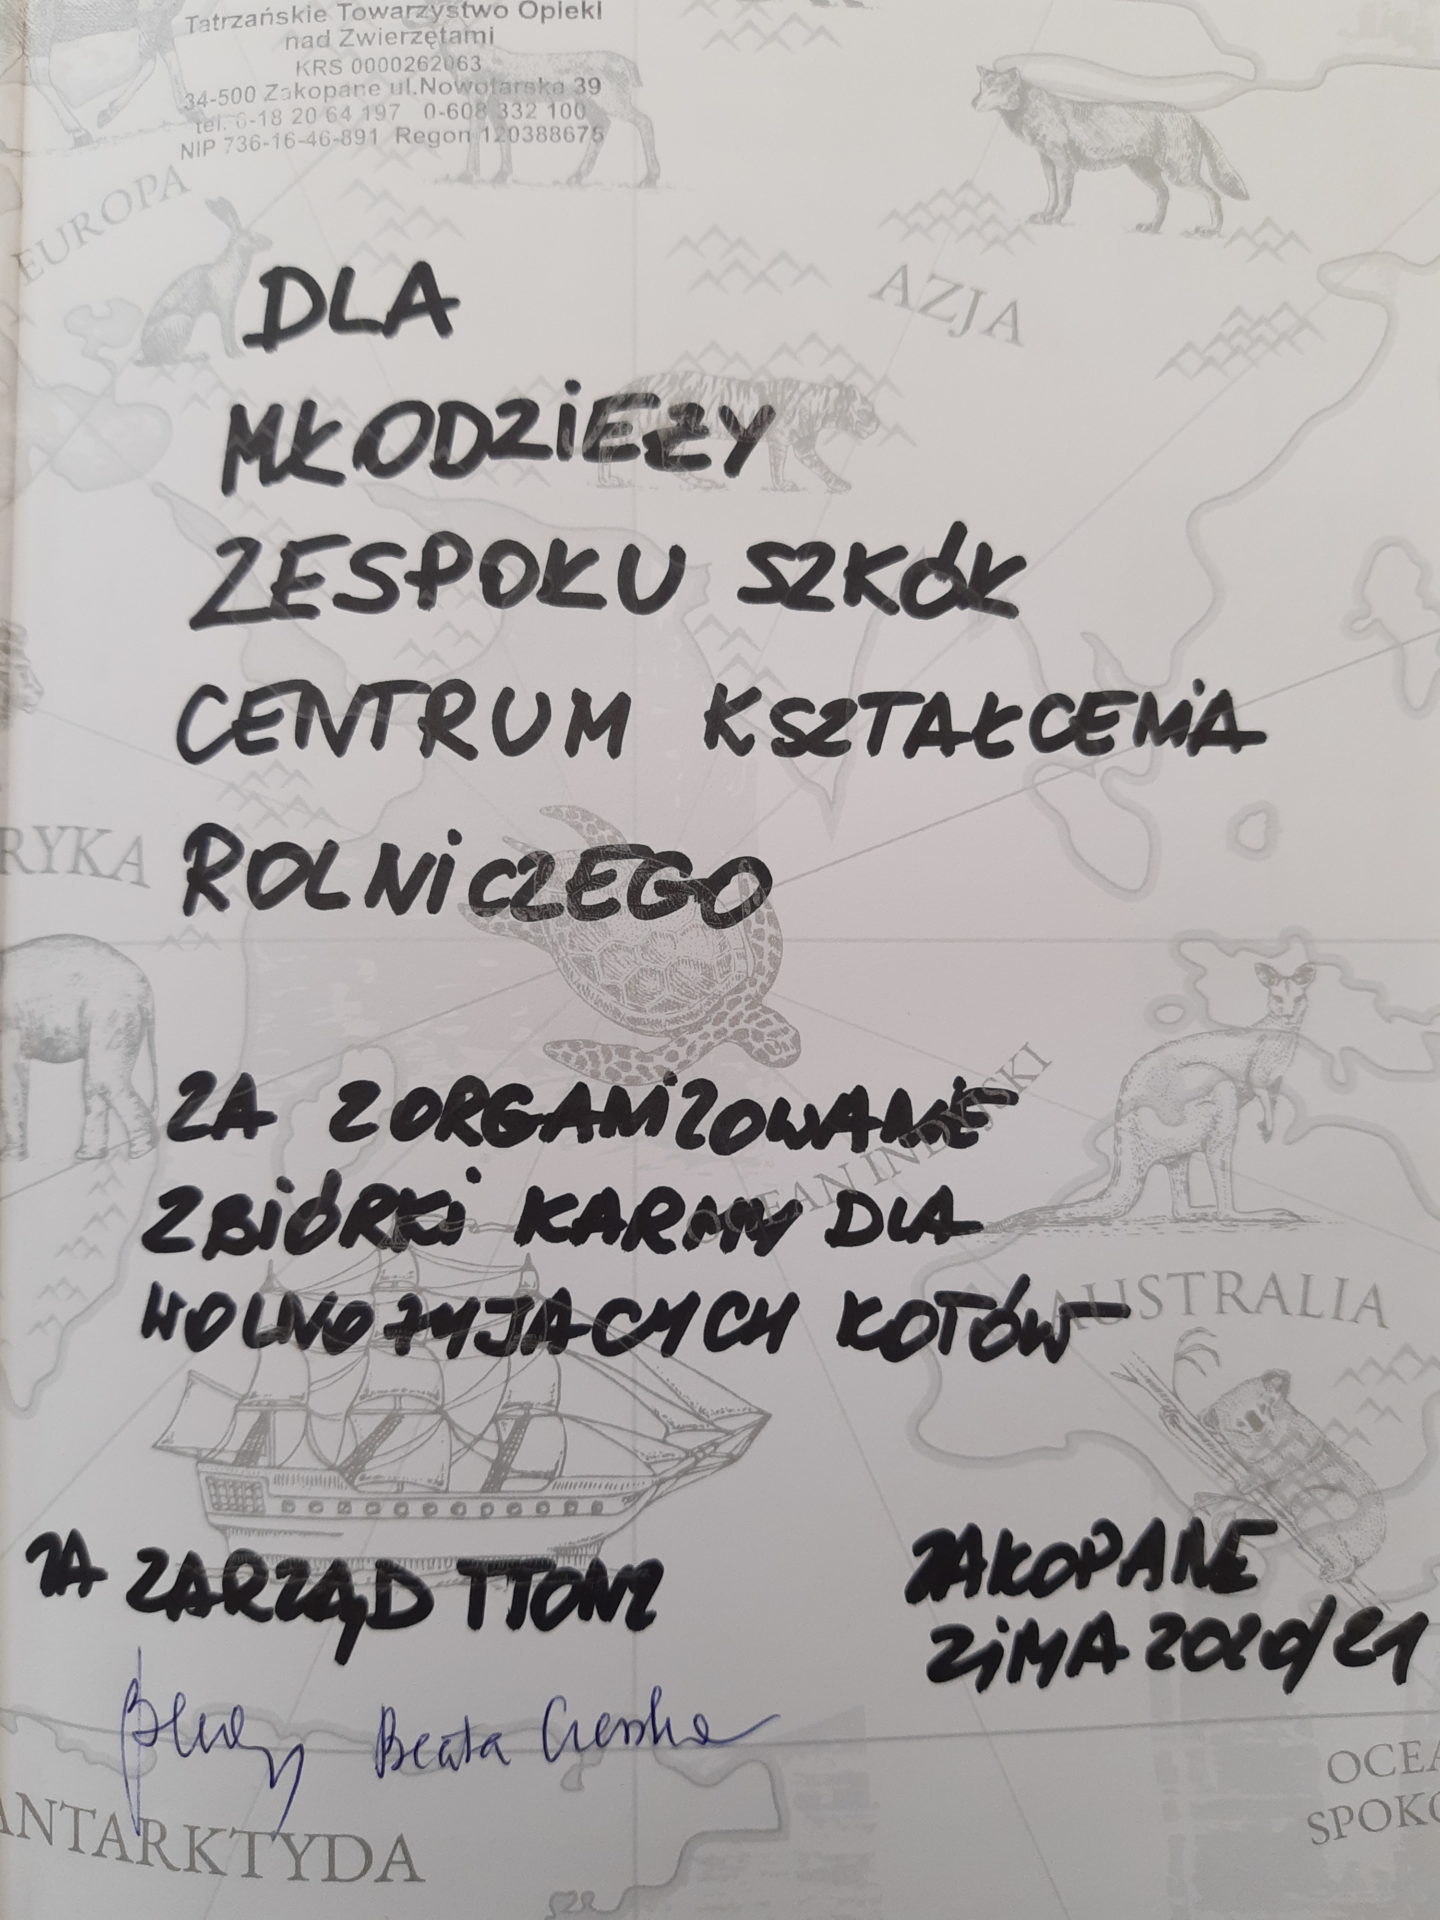 Tatrzańskie Towarzystwo Opieki
nad Zwierzętami
KRS 0000262063
34-500 Zakopane ul.Nowotarska 39
tel. 6-18 20 64 197 0-608 332 100
NIP 736-16-46-891 Regon 120388675
EUROPA
AZJA
DLA
MŁODZIEŻY
ZESPOŁU SZKÓŁ
CENTRUM KSZTAŁCENIA
ROLNICZEGO
RYKA
ZA ZORGANIZOWANIE
ZBIÓRKI KARMY DLA
WOLNOŻYJĄCYCH KOTÓW
OCEAN INDYJSKI
AUSTRALIA
ZA ZARZĄD TTONZ
ZAKOPANE
ZIMA 2020/21
Beata
ANTARKTYDA
OCEA
SPOKO